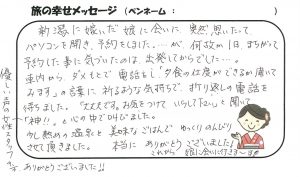 旅の幸せメッセージ (ペンネーム： )
新潟に嫁いだ娘に会いに、突然思いたって
パソコンを開き、予約をしました。…が、何故か1日まちがって
予約した事に気づいたのは、出発してからでした…。
車内から、ダメもとで電話をし「夕食の仕度ができるか聞いて
みます。」の言葉に祈るような気持ちで、折り返しの電話を
待ちました。「大丈夫です。お気をつけていらして下さい。」と聞いて
「神!!」と心の中で叫びました。
少し熱めの温泉と美味なごはんでゆっくりのんびり
させて頂きました。 本当にありがとうございました!
これから娘に会いに行きまーす
優しい声の女性スタッフさま
ありがとうございました!!